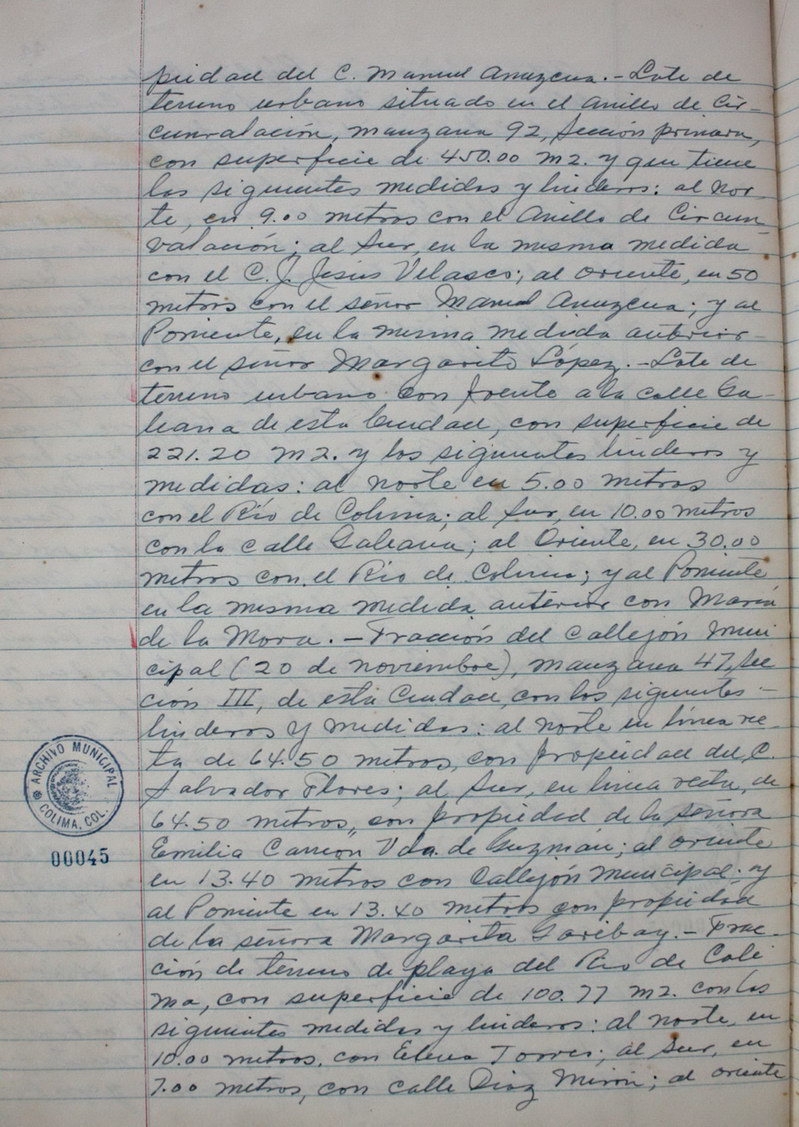 piedad del C. Manuel Amezcua. - Lote de
terreno urbano situado en el Anillo de Cir-
cunvalación, manzana 92, Sección primera,
con superficie de 450.00 m2. y que tiene
las siguientes medidas y linderos: al Nor-
te, en 9.00 metros con el Anillo de Circun-
valación; al Sur, en la misma medida
con el C. J. Jesús Velasco; al Oriente, en 50
metros con el señor Manuel Amezcua; y al
Poniente, en la misma medida anterior
con el señor Margarito López. - Lote de
terreno urbano con frente a la calle Ga-
leana de esta Ciudad, con superficie de
221.20 m2. y los siguientes linderos y
medidas: al norte en 5.00 metros
con el Río de Colima; al Sur, en 10.00 metros
con la calle Galeana; al Oriente, en 30.00
metros con el Río de Colima; y al Poniente
en la misma medida anterior con María
de la Mora. - Fracción del Callejón Muni
cipal (20 de Noviembre), manzana 47, Sec
ción III, de esta Ciudad, con los siguientes -
linderos y medidas: al norte en línea rec-
ta de 64.50 metros, con propiedad del C.
Salvador Flores; al Sur, en línea recta, de
64.50 metros, con propiedad de la señora
Emilia Carrión Vda. de Guzmán; al oriente
en 13.40 metros con Callejón Municipal; y
al Poniente en 13.40 metros con propiedad
de la señora Margarita Garibay. - Frac-
ción de terreno de playa del Río de Coli
ma, con superficie de 100.77 m2. con las
siguientes medidas y linderos: al norte, en
10.00 metros, con Elena Torres; al Sur, en
7.00 metros, con calle Díaz Mirón; al oriente
ARCHIVO MUNICIPAL
COLIMA, COL.
00045